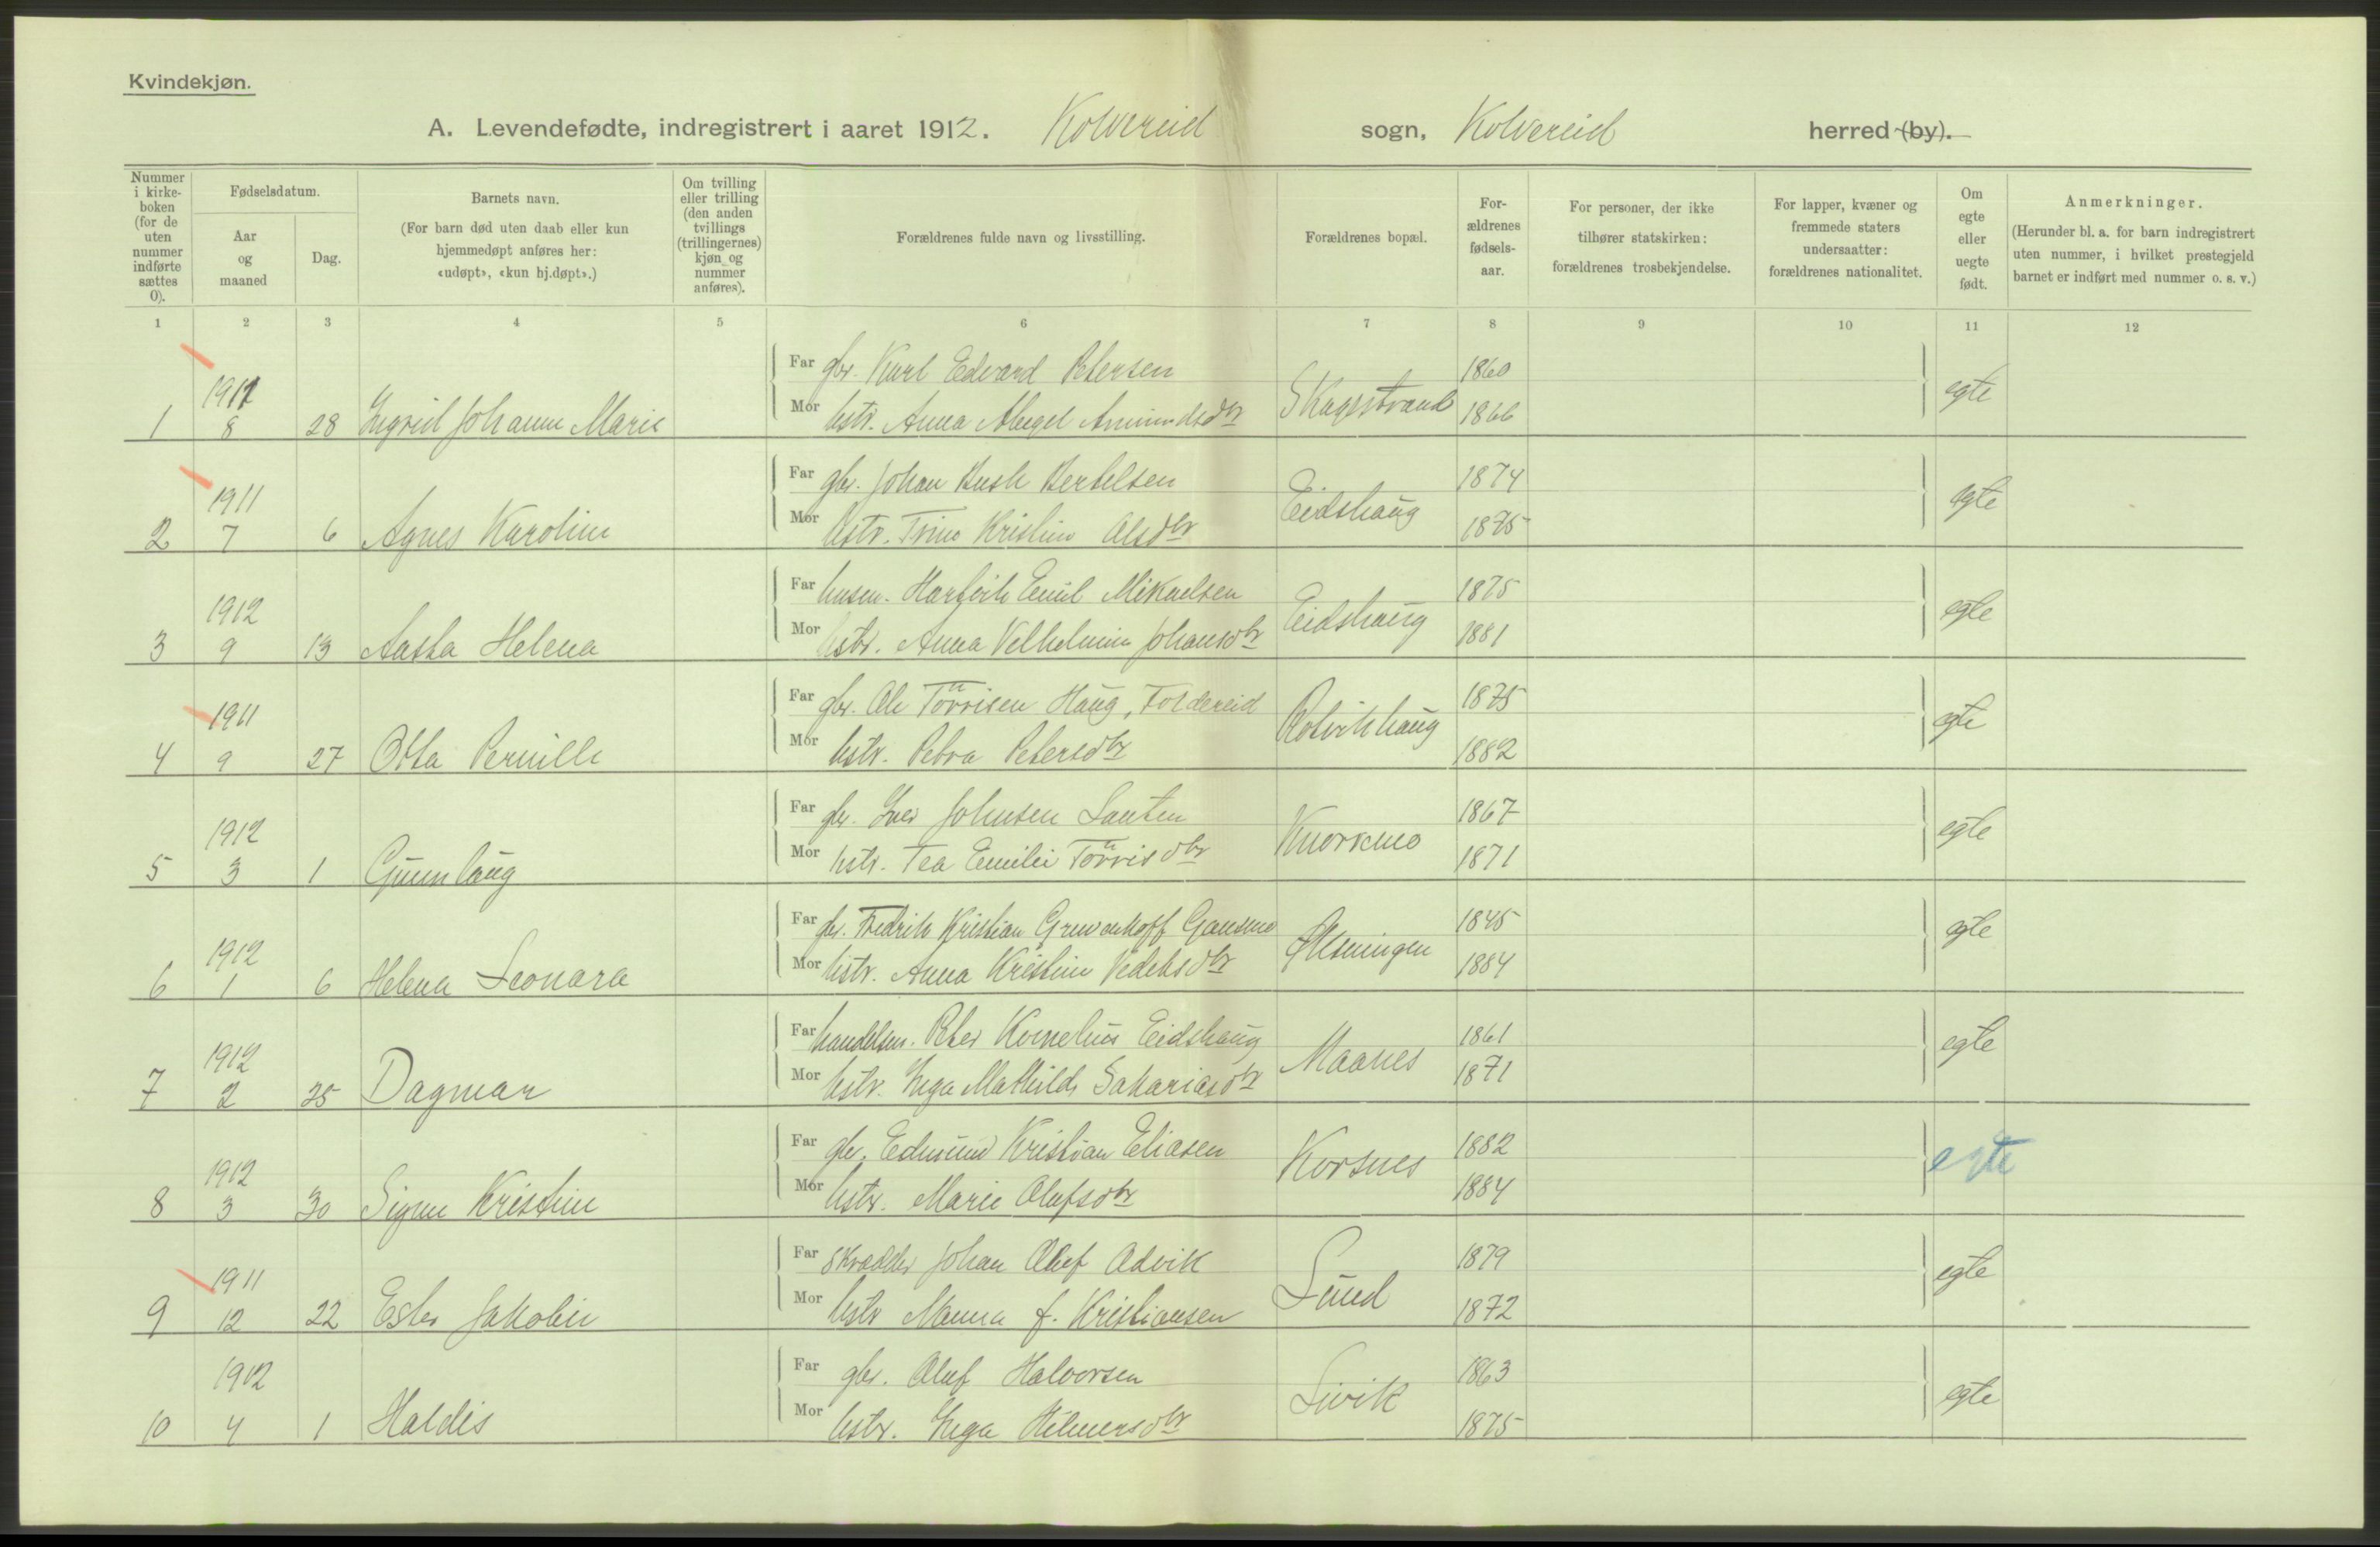 Kvindekjøn.
A. Levendefødte, indregistrert i aaret 1912. Kolvereid sogn, Kolvereid herred (by).
Nummer i kirke-boken (for de uten nummer indførte sættes 0).
Fødselsdatum.
Aar og maaned
Dag.
Barnets navn.
(For barn død uten daab eller kun hjemmedøpt anføres her: «udøpt», «kun hj.døpt».)
Om tvilling eller trilling (den anden tvillings (trillingernes) kjøn og nummer anføres).
Forældrenes fulde navn og livsstilling.
Forældrenes bopæl.
For-ældrenes fødsels-aar.
For personer, der ikke tilhører statskirken: forældrenes trosbekjendelse.
For lapper, kvæner og fremmede staters undersaatter: forældrenes nationalitet.
Om egte eller uegte født.
Anmerkninger.
(Herunder bl. a. for barn indregistrert uten nummer, i hvilket prestegjeld barnet er indført med nummer o. s. v.)
1 2 3 4 5 6 7 8 9 10 11 12
Far gbr. Karl Edvard Petersen 1860
1 1911 8 28 Ingrid Johanne Marie Mor hstr. Anna Amundsdtr Skagstrand 1866 egte
Far gbr. Johan Bertelsen 1874
2 1911 7 6 Agnes Karoline Mor hstr. Trine Kristine Olsdtr Eidshaug 1875 egte
Far husm. Hartvik Emil Mikaelsen 1875
3 1912 9 13 Aasta Helena Mor hstr. Anna Velhelmine Johansdtr Eidshaug 1881 egte
Far gbr. Ole Törrisen Haug, Foldereid 1875
4 1911 9 27 Otta Pernille Mor hstr. Petra Petersdtr 1882 egte
Far gbr. Iver Johnsen 1867
5 1912 3 1 Gunnlaug Mor hstr. Tea Emilie Törrisdtr 1871 egte
Far gbr. Fredrik Kristian Gansmo 1845
6 1912 1 6 Helena Leonara Mor hstr. Anna Kristine 1884 egte
Far handelsm. Peter Kornelius Eidshaug 1861
7 1912 2 25 Dagmar Mor hstr. Inga Mathilde Sakariasdtr Maanes 1871 egte
Far gbr. Edmund Kristian Eliasen 1882
8 1912 3 30 Signe Kristine Mor hstr. Marie Olufsdtr Korsnes 1884 egte
Far skrædder Johan Oluf Advik 1879
9 1911 12 22 Ester Jakobine Mor hstr Manna f. Kristiansen Lund 1872 egte
Far gbr. Oluf Halvorsen 1863
10 1912 4 1 Haldis Mor hstr. Inga Hilmersdtr Livik 1875 egte